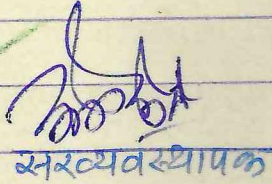 सरव्यवस्थापक